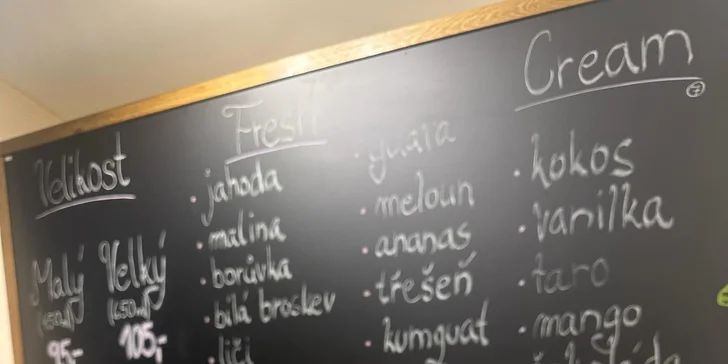 Velikost
Malý Velký
95,- 105,-
Fresh
jahoda
malina
borůvka
bílá broskev
liči
guava
meloun
ananas
třešeň
kumquat
Cream
7
kokos
vanilka
taro
mango